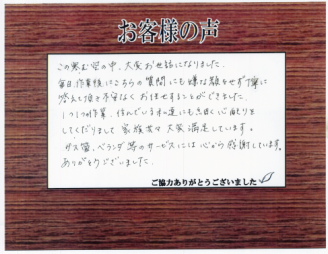 お客様の声
この寒い空の中、大変お世話になりました。
毎日作業後にこちらの質問にも嫌な顔をせず丁寧に
答えて頂き不安なくお任せすることができました。
1つ1つの作業、住んでいる私達にも気配り心配りを
してくださりまして家族共々大変満足しています。
サス窓、ベランダ等のサービスには心から感謝しています。
ありがとうございました。
ご協力ありがとうございました